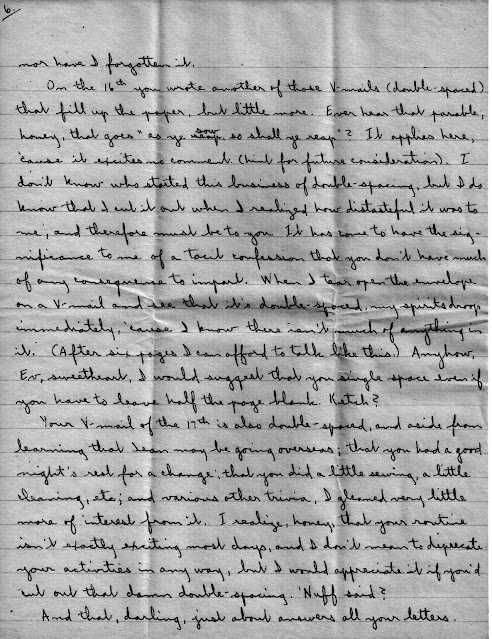 6.
nor have I forgotten it.
On the 16th you wrote another of those V-mails (double-spaced)
that fill up the paper, but little more. Ever hear that parable,
honey, that goes "as ye sow, so shall ye reap"? It applies here,
'cause it excites no comment (hint for future consideration). I
don't know who started this business of double-spacing, but I do
know that I cut it out when I realized how distasteful it was to
me, and therefore must be to you. It has come to have the sig-
nificance to me of a tacit confession that you don't have much
of any consequence to impart. When I tear open the envelope
on a V-mail and see that it's double-spaced, my spirits drop,
immediately, 'cause I know there isn't much of anything in
it. (After six pages I can afford to talk like this.) Anyhow,
Ev, sweetheart, I would suggest that you single space even if
you have to leave half the page blank. Ketch?
Your V-mail of the 17th is also double-spaced, and aside from
learning that Jean may be going overseas; that you had a good
night's rest for a change; that you did a little sewing, a little
cleaning, etc; and various other trivia, I gleaned very little
more of interest from it. I realize, honey, that your routine
isn't exactly exciting most days, and I don't mean to depreciate
your activities in any way, but I would appreciate it if you'd
cut out that damn double-spacing. 'Nuff said?
And that, darling, just about answers all your letters.